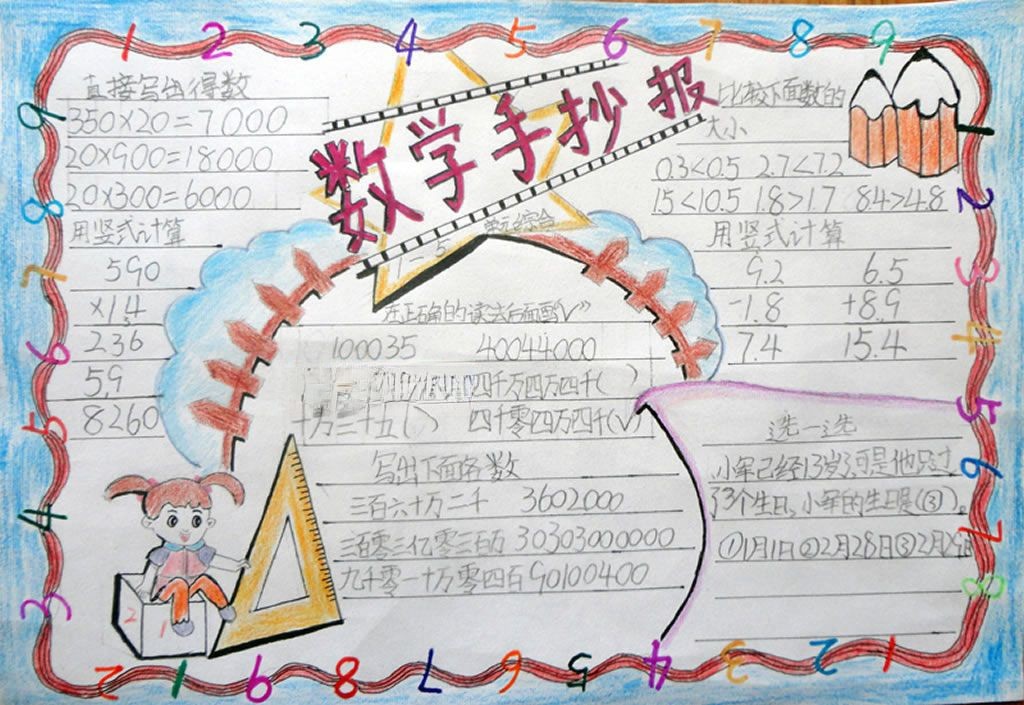 1 2 3 4 5 6 7 8 9
数学手抄报
1-5 单元综合
直接写出得数
350×20=7000
20×900=18000
20×300=6000
用竖式计算
590
×14
236
59
8260
比较下面数的
大小
0.3<0.5 2.7<7.2
1.5<10.5 1.8>1.7 8.4>4.8
用竖式计算
9.2 6.5
-1.8 +8.9
7.4 15.4
在正确的读法后面画"√"
100035 40044000
四千万四万四千( )
十万三十五( ) 四千零四万四千(√)
写出下面各数
三百六十万二千 3602000
三百零三亿零三百万 30303000000
九千零一十万零四百 90100400
选一选
小军已经13岁,可是他只过
了3个生日,小军的生日是(③)。
①1月1日②2月28日③2月29日
2 1
9
8
7
6
5
4
3
2
3
4
5
6
7
8
2 1 9 8 7 6 5 4 3 2 1